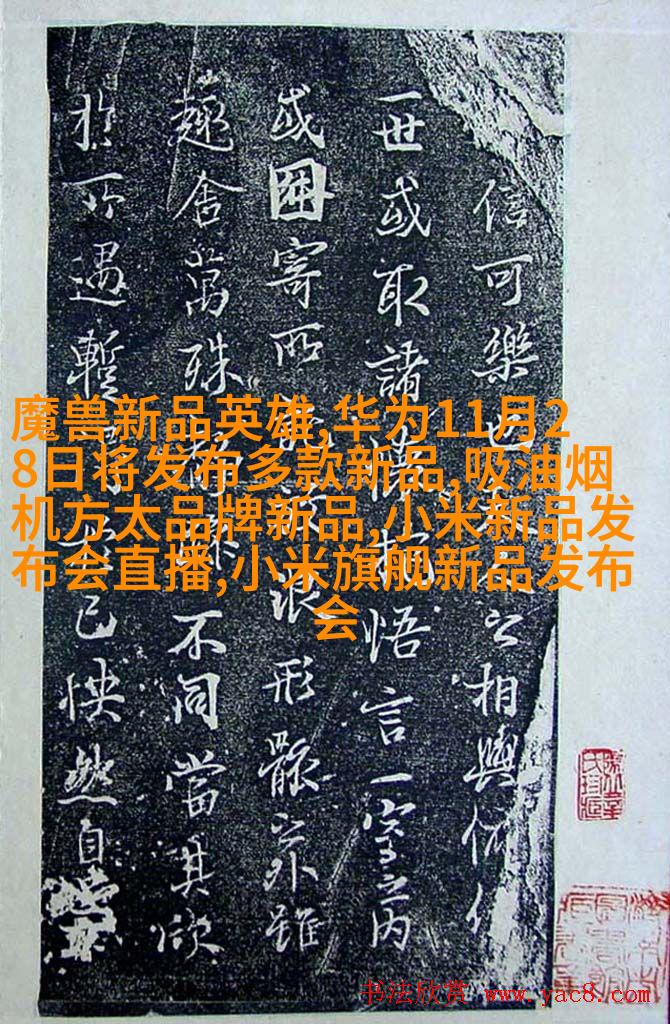 信可樂也夫人之相與俯仰
一世或取諸懷抱悟言一室之内
或因寄所託放浪形骸之外雖
趣舍萬殊靜躁不同當其欣
於所遇暫得於己怏然自
魔兽新品英雄,华为11月2
8日将发布多款新品,吸油烟
机方太品牌新品,小米新品发
布会直播,小米旗舰新品发布
会
书法欣赏 www.yac8.com